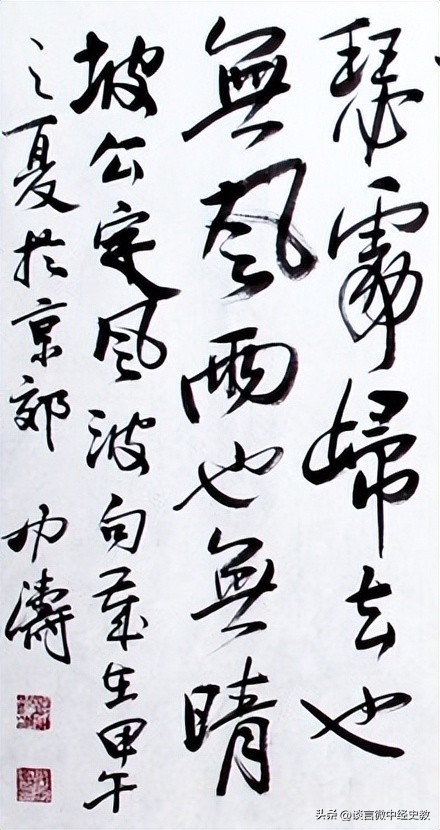 瑟處歸去也
無風雨也無晴
坡公定風波句歲在甲午
之夏於京郊 濤
头条 @谈言微中经史教